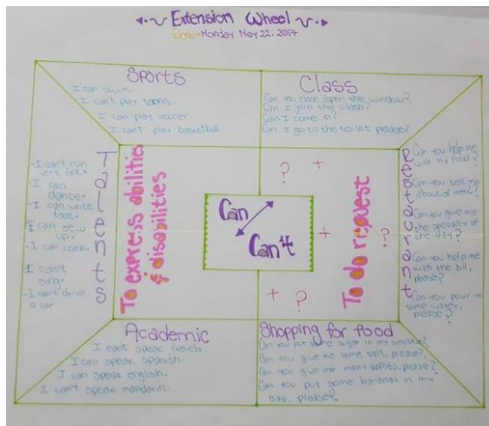 Extension Wheel
Date: Monday May 22, 2017
Sports
I can swim.
I can't play tennis.
I can play soccer
I can't play basketball
Class
Can you close/open the window?
Can I join the class?
Can I come in?
Can I go to the toilet please?
Talents
-I can't run
very fast.
-I can
dance.
-I can write
-I can sew
-I can cook.
-I can't
sing.
-I can't drive
a car.
To express abilities
& disabilities
Can
Can't
?
+
+
?
+
?
To do request
Restaurant
Can you help me
with my food?
Can you tell me
Can you give me
the specialty of
the day?
Can you help me
with the bill,
please?
Can you pour me
some water,
please?
Academic
I can't speak french.
I can speak spanish.
I can speak english.
I can't speak mandarin.
Shopping for food
Can you put some sugar in my
Can you give me some salt, please?
Can you give me many apples, please?
Can you put some bananas in my
bag, please?